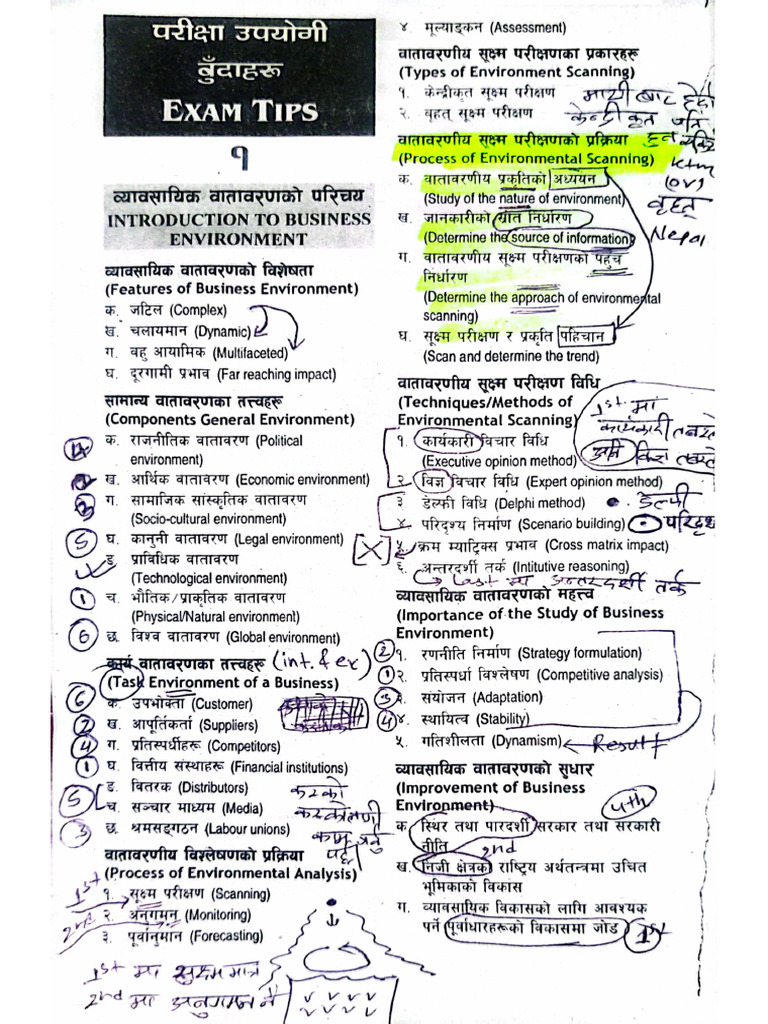 परीक्षा उपयोगी
बुँदाहरू
EXAM TIPS
१
व्यावसायिक वातावरणको परिचय
INTRODUCTION TO BUSINESS
ENVIRONMENT
व्यावसायिक वातावरणको विशेषता
(Features of Business Environment)
क. जटिल (Complex)
ख. चलायमान (Dynamic)
ग. बहु आयामिक (Multifaceted)
घ. दूरगामी प्रभाव (Far reaching impact)
सामान्य वातावरणका तत्त्वहरू
(Components General Environment)
क. राजनीतिक वातावरण (Political
environment)
ख. आर्थिक वातावरण (Economic environment)
ग. सामाजिक सांस्कृतिक वातावरण
(Socio-cultural environment)
5 घ. कानुनी वातावरण (Legal environment)
ङ. प्राविधिक वातावरण
(Technological environment)
1 च. भौतिक/प्राकृतिक वातावरण
(Physical/Natural environment)
6 छ. विश्व वातावरण (Global environment)
कार्य वातावरणका तत्त्वहरू (int. & ex)
(Task Environment of a Business)
6 क. उपभोक्ता (Customer)
2 ख. आपूर्तिकर्ता (Suppliers)
4 ग. प्रतिस्पर्धीहरू (Competitors)
1 घ. वित्तीय संस्थाहरू (Financial institutions)
ङ. वितरक (Distributors)
5 च. सञ्चार माध्यम (Media)
3 छ. श्रमसङ्गठन (Labour unions)
वातावरणीय विश्लेषणको प्रक्रिया
(Process of Environmental Analysis)
1st १. सूक्ष्म परीक्षण (Scanning)
2nd २. अनुगमन (Monitoring)
३. पूर्वानुमान (Forecasting)
1st मा सुक्ष्म
2nd मा अनुगमन
४ मूल्याङ्कन (Assessment)
वातावरणीय सूक्ष्म परीक्षणका प्रकारहरू
(Types of Environment Scanning)
१. केन्द्रीकृत सूक्ष्म परीक्षण माथी बाट हेर्दा
२. बृहत् सूक्ष्म परीक्षण केन्द्रीकृत
वातावरणीय सूक्ष्म परीक्षणको प्रक्रिया
(Process of Environmental Scanning)
Ktm
क. वातावरणीय प्रकृतिको अध्ययन
(Study of the nature of environment)
ख. जानकारीको स्रोत निर्धारण बृहत्
(Determine the source of information) Nepal
ग. वातावरणीय सूक्ष्म परीक्षणको पहुँच
निर्धारण
(Determine the approach of environmental
scanning)
घ. सूक्ष्म परीक्षण र प्रकृति पहिचान
(Scan and determine the trend)
वातावरणीय सूक्ष्म परीक्षण विधि
(Techniques/Methods of
Environmental Scanning)
1st. मा
कार्यकारी
१. कार्यकारी विचार विधि
(Executive opinion method)
२. विज्ञ विचार विधि (Expert opinion method)
३ डेल्फी विधि (Delphi method) डेल्फी
४. परिदृश्य निर्माण (Scenario building) परिदृश्य
X ५. क्रम म्याट्रिक्स प्रभाव (Cross matrix impact)
६. अन्तरदर्शी तर्क (Intitutive reasoning)
last मा अन्तरदर्शी तर्क
व्यावसायिक वातावरणको महत्त्व
(Importance of the Study of Business
Environment)
2 १. रणनीति निर्माण (Strategy formulation)
1 २. प्रतिस्पर्धा विश्लेषण (Competitive analysis)
3 ३. संयोजन (Adaptation)
4 ४. स्थायित्व (Stability)
५. गतिशीलता (Dynamism) Result
व्यावसायिक वातावरणको सुधार
(Improvement of Business
Environment)
4th
क. स्थिर तथा पारदर्शी सरकार तथा सरकारी
नीति
2nd
ख. निजी क्षेत्रको राष्ट्रिय अर्थतन्त्रमा उचित
भूमिकाको विकास
ग. व्यावसायिक विकासको लागि आवश्यक
पर्ने पूर्वाधारहरूको विकासमा जोड 1st